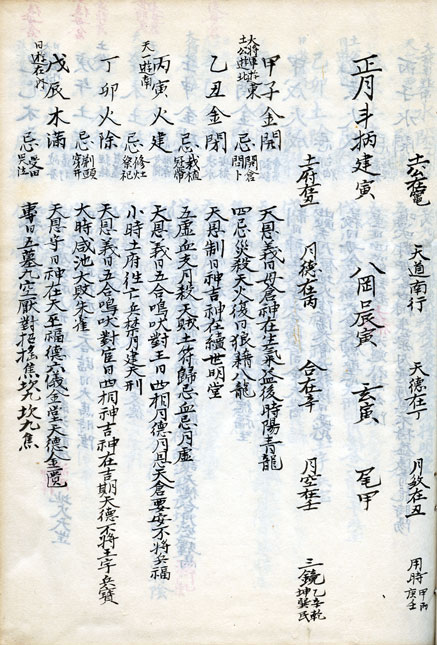 土公在竈　天道南行　天德在丁　月殺在丑　用時 甲丙庚壬
正月斗柄建寅　八岡辰寅　玄寅　尾甲
土府在丑　月德在丙　合在辛　月空在壬　三鏡 乙辛乾坤巽艮
大將軍遊東
土公遊北
甲子金開 忌 開倉 問卜
天恩義日母倉神在生氣益後時陽青龍
四忌災殺天火後日狼藉八龍
乙丑金閉 忌 栽植 冠帶
天恩制日神吉神在續世明堂
五虛血支月殺天賊土符歸忌血忌月虛
天一遊南
丙寅火建 忌 修灶 祭祀
天恩義日五合鳴吠對王日四相月德月恩天倉要安不將兵福
小時土府往亡兵禁月建天刑
丁卯火除 忌 剃頭 穿井
天恩義日五合鳴吠對官日四相神吉神在吉期天德不將玉宇兵寶
大時咸池大敗朱雀
日遊在外
戊辰木滿 忌 受田 哭泣
天恩守日神在天巫福德六儀金堂天德金匱
專日五墓九空厭對招搖焦坎九坎九焦